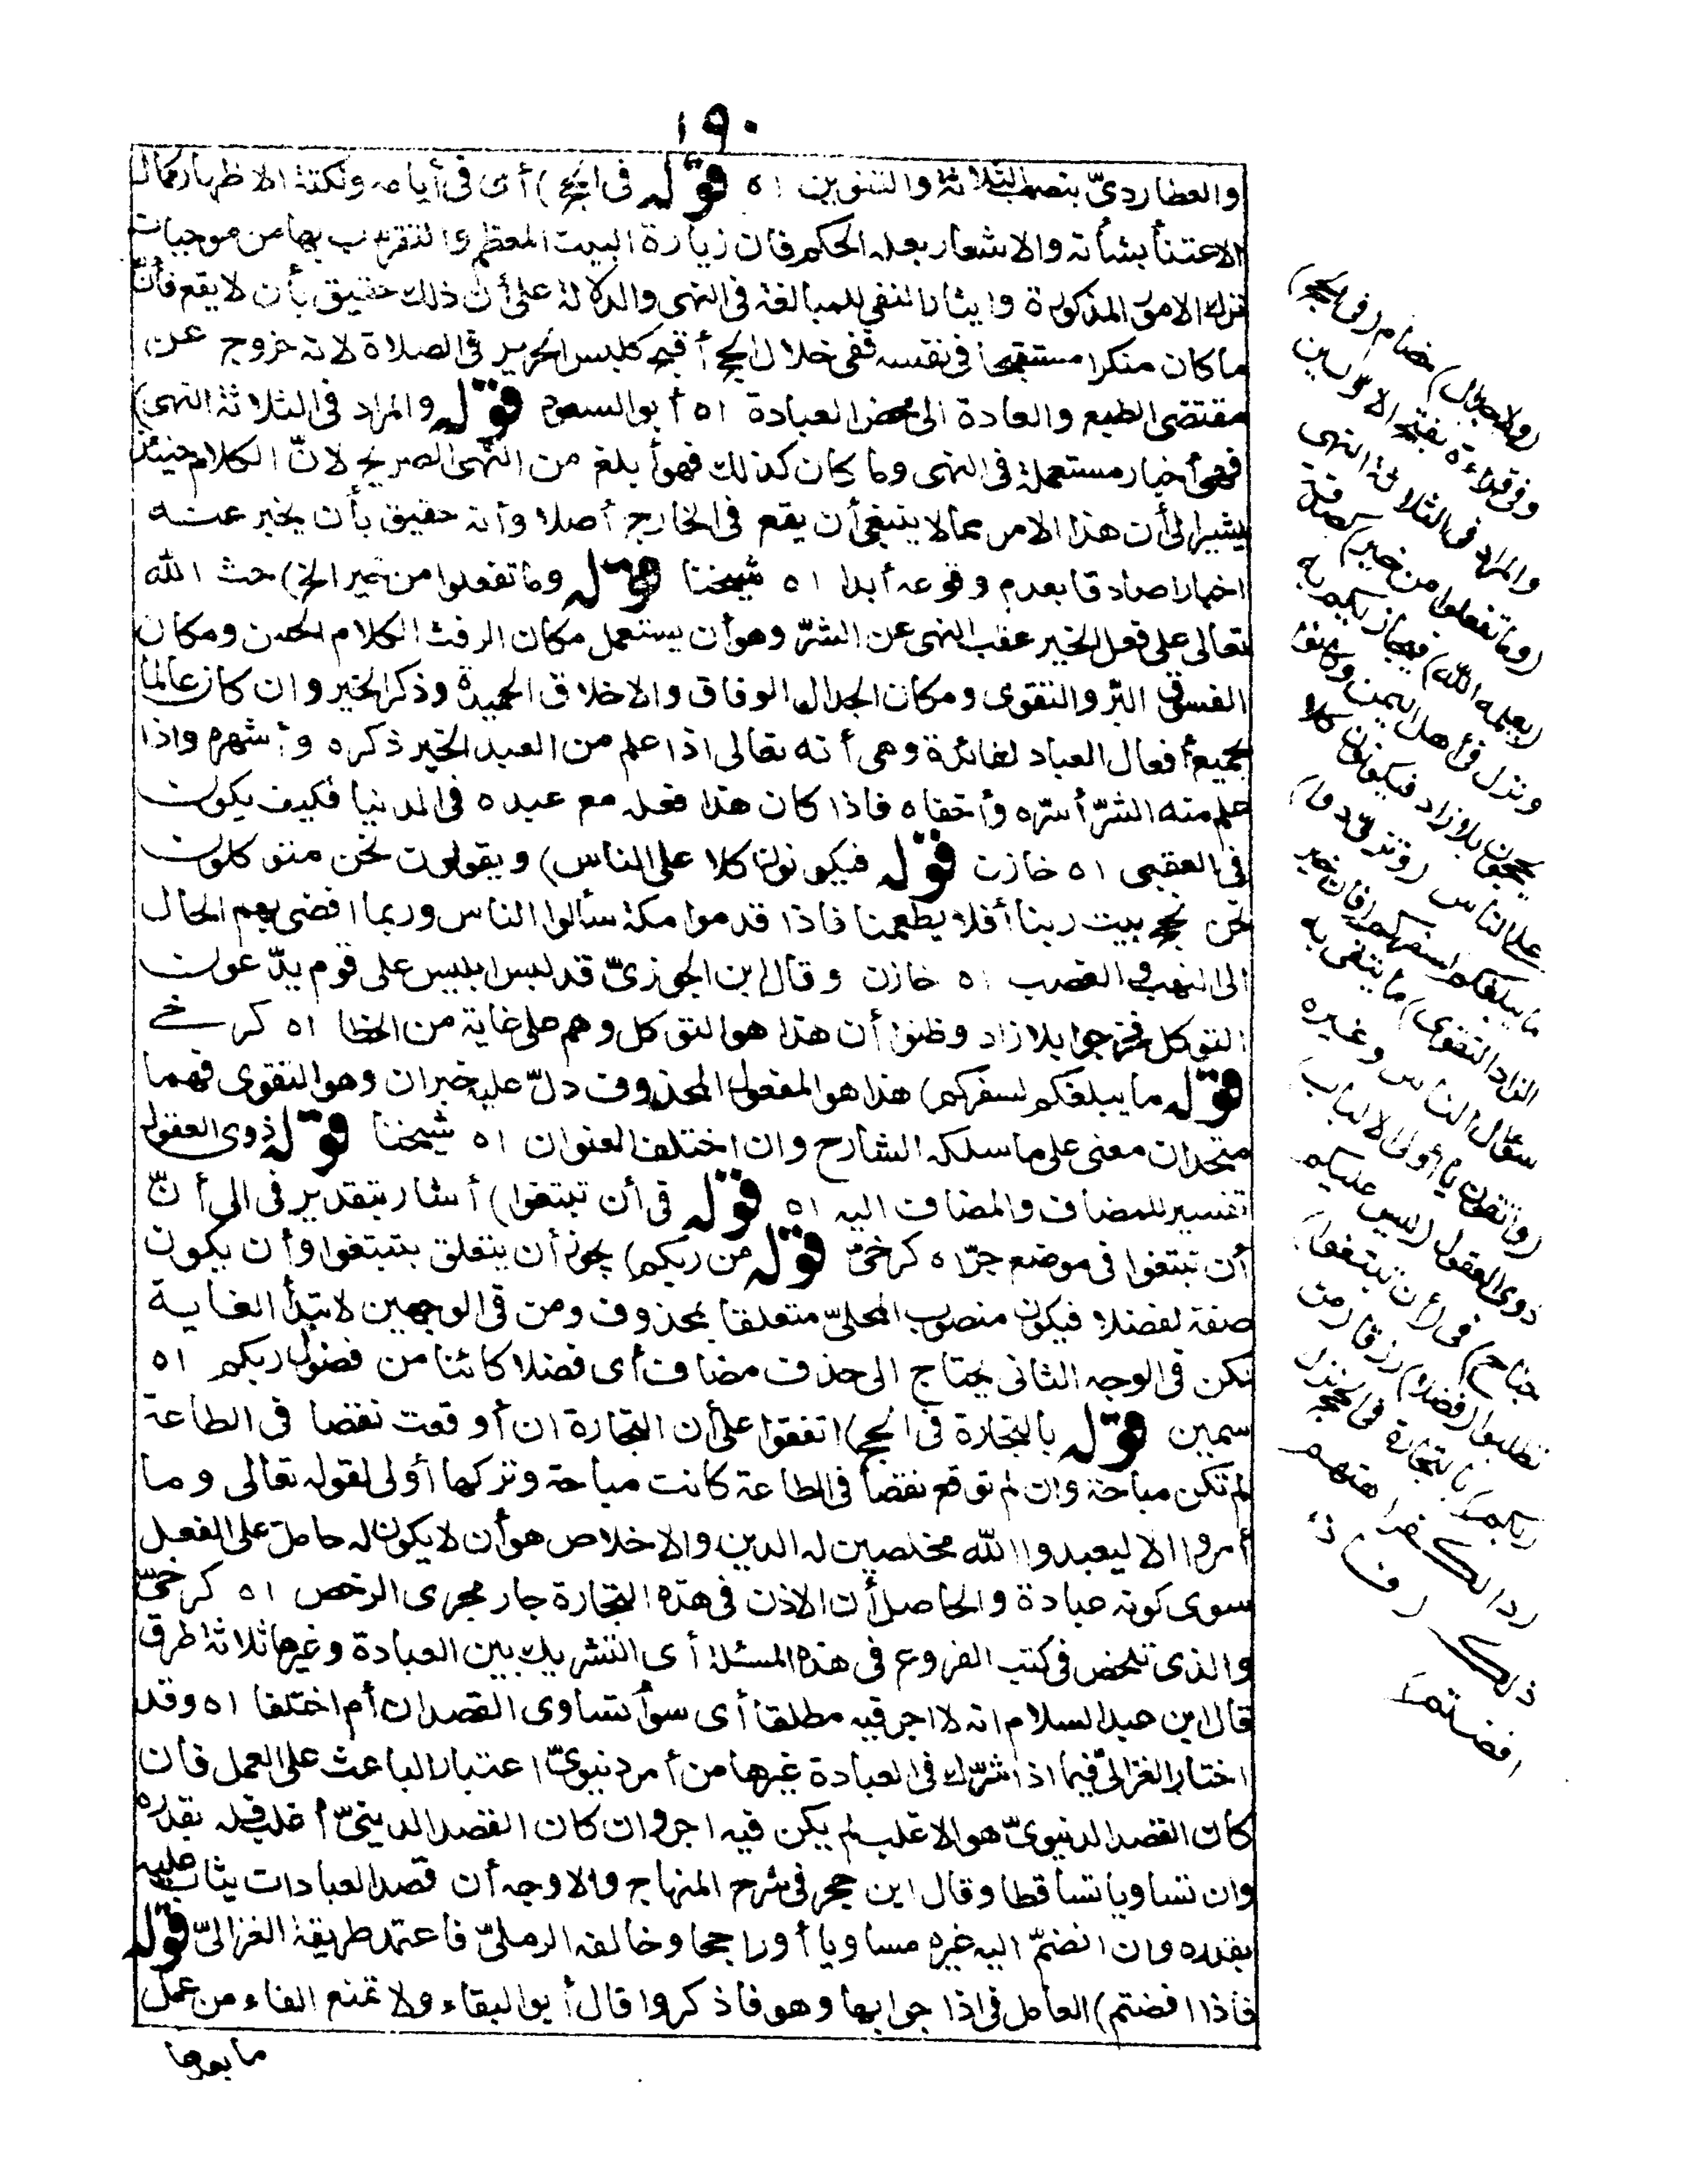 ١٩٠
والعطاردي بنصب الثلاثة والتنوين اه قوله في الحج) أي في أيامه ونكتة الاظهار كمال
الاعتنا بشأنه والاشعار بعلة الحكم فان زيارة البيت المعظم والتقرب بها من موجبات
ترك الامور المذكورة وايثار النفي للمبالغة في النهي والدلالة على أن ذلك حقيق بأن لا يقع فأن
ما كان منكرا مستقبحا في نفسه ففي خلال الحج أقبح كلبس الحرير في الصلاة لانه خروج عن
مقتضى الطبع والعادة الى محض العبادة اه أبو السعود قوله والمراد في الثلاثة النهي)
فهي أخبار مستعملة في النهي وما كان كذلك فهو أبلغ من النهي الصريح لانّ الكلام حينئذ
يشير الى أن هذا الامر مما لا ينبغي أن يقع في الخارج أصلا وأنه حقيق بأن يخبر عنه
اخبارا صادقا بعدم وقوعه أبدا اه شيخنا قوله وما تفعلوا من خير الخ) حث الله
تعالى على فعل الخير عقب النهي عن الشرّ وهو أن يستعمل مكان الرفث الكلام الحسن ومكان
الفسوق البرّ والتقوى ومكان الجدال الوفاق والاخلاق الحميدة وذكر الخير وان كان عالما
بجميع أفعال العباد لفائدة وهي أنه تعالى اذا علم من العبد الخير ذكره وأشهره واذا
علم منه الشرّ أسرّه وأخفاه فاذا كان هذا فعله مع عبده في الدنيا فكيف يكون
في العقبى اه خازن قوله فيكونون كلا على الناس) ويقولون نحن متوكلون
نحن نحج بيت ربنا أفلا يطعمنا فاذا قدموا مكة سألوا الناس وربما افضى بهم الحال
الى النهب والغصب اه خازن وقال ابن الجوزيّ قد لبس ابليس على قوم يدّعون
التوكل فخرجوا بلا زاد وظنوا أن هذا هو التوكل وهم على غاية من الخطا اه كرخي
قوله ما يبلغكم لسفركم) هذا هو المفعول المحذوف دلّ عليه خبر ان وهو التقوى فهما
متحدان معنى على ما سلكه الشارح وان اختلف العنوان اه شيخنا قوله ذوي العقول
تفسير للمضاف والمضاف اليه اه قوله في أن تبتغوا) أشار بتقدير في الى أنّ
أن تبتغوا في موضع جرّ اه كرخيّ قوله من ربكم) يجوز أن يتعلق بتبتغوا وأن يكون
صفة لفضلا فيكون منصوب المحلّ متعلقا بمحذوف ومن في الوجهين لابتدأ الغاية
لكن في الوجه الثاني يحتاج الى حذف مضاف أي فضلا كائنا من فضول ربكم اه
سمين قوله بالتجارة في الحج) اتفقوا على أن التجارة ان أوقعت نقصا في الطاعة
لم تكن مباحة وان لم توقع نقصا في الطاعة كانت مباحة وتركها أولى لقوله تعالى وما
أمروا الا ليعبدوا الله مخلصين له الدين والاخلاص هو أن لا يكون له حامل على الفعل
سوى كونه عبادة والحاصل أن الاذن في هذه التجارة جار مجرى الرخص اه كرخيّ
والذي تلخص في كتب الفروع في هذه المسئلة أي التشريك بين العبادة وغيرها ثلاثة طرق
قال ابن عبد السلام انه لا اجر فيه مطلقا أي سوأ تساوى القصدان أم اختلفا اه وقد
اختار الغزاليّ فيما اذا شرّك في العبادة غيرها من أمر دنيويّ اعتبار الباعث على العمل فان
كان القصد الدنيويّ هو الاغلب لم يكن فيه اجر وان كان القصد الدينيّ أغلب فله بقدره
وان تساويا تساقطا وقال ابن حجر في شرح المنهاج والاوجه أن قصد العبادات يثاب عليه
بقدره وان انضمّ اليه غيره مساويا أو راجحا وخالفه الرمليّ فاعتمد طريقة الغزاليّ قوله
فاذا افضتم) العامل في اذا جوابها وهو فاذكروا قال أبو البقاء ولا تمنع الفاء من عمل
ما بعدها
(ولا جدال) خصام (في الحج)
وفي قراءة بفتح الاولين
والمراد في الثلاثة النهي
(وما تفعلوا من خير) كصدقة
(يعلمه الله) فيجازيكم به
ونزل في أهل اليمن وكانوا
يحجون بلا زاد فيكونون كلا
على الناس (وتزودوا)
ما يبلغكم لسفركم (فان خير
الزاد التقوى) ما يتقى به
سؤال الناس وغيره
(واتقون يا أولي الالباب)
ذوي العقول (ليس عليكم
جناح) في (أن تبتغوا)
تطلبوا (فضلا) رزقا (من
ربكم) بالتجارة في الحج نزل
ردا لكراهتهم
ذلك (فاذا
افضتم)